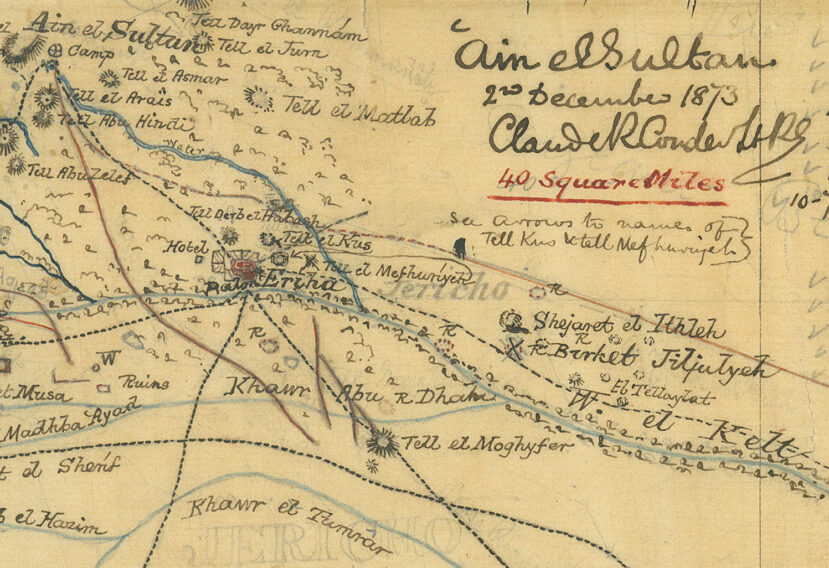 Tell Dayr Ghannám
Ain el Sultan
Tell el Jurn
Camp
Tell el Asmar
Tell el Arais
Tell el Matlab
Tell Abu Hindi
Water
Tell Abu Zelef
'Ain el Sultan
2nd December 1873
Claude R Conder Lt RE
40 Square Miles
10-
See arrows to names of
Tell Kus & tell Mefhuriyeh
Tell Derb el Habash
Hotel
Tell el Kus
Tell el Mefhuriyeh
Eriha
Jericho
R
Shejaret el Ithleh
R
R
R
R
Birket Jiljulyeh
W
Ruins
et Musa
Khawr Abu Dhahi
R
El Tellaylat
W. el Kelt
Madhba Ayad
Tell el Moghyfer
t el Sherif
Khawr et Tumrar
b el Hazim
JERICHO